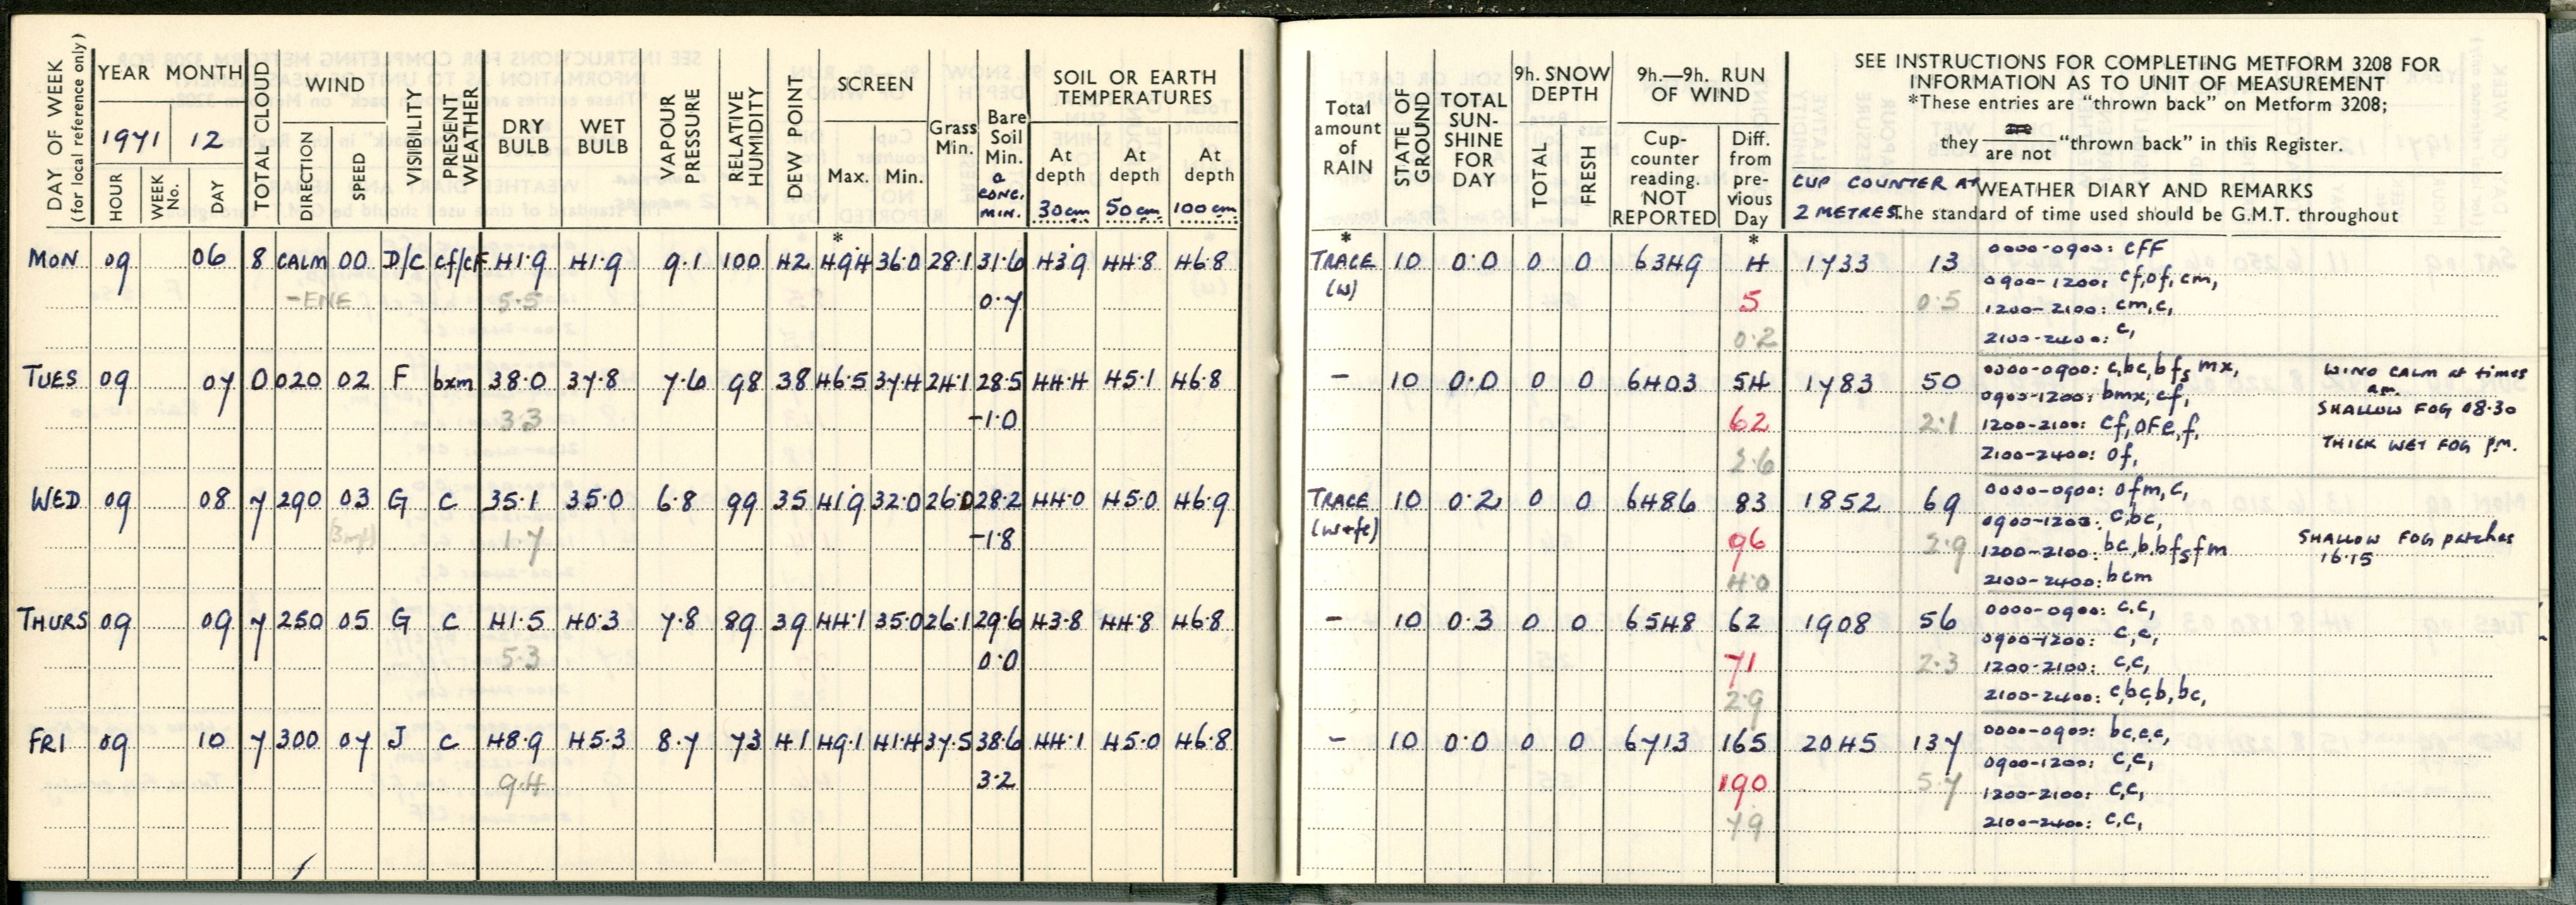 DAY OF WEEK
(for local reference only)
YEAR MONTH
1971 12
HOUR
WEEK No.
DAY
TOTAL CLOUD
WIND
DIRECTION
SPEED
VISIBILITY
PRESENT WEATHER
DRY BULB
WET BULB
VAPOUR PRESSURE
RELATIVE HUMIDITY
DEW POINT
SCREEN
Max. Min.
*
Grass Min.
Bare Soil Min.
CONC. MIN.
SOIL OR EARTH TEMPERATURES
At depth 30cm
At depth 50cm
At depth 100cm
MON 09 06 8 CALM 00 D/C cf/cF 41.9 41.9 9.1 100 42 49.4 36.0 28.1 31.6 43.9 44.8 46.8
-ENE 5.5 0.7
TUES 09 07 0 020 02 F bxm 38.0 37.8 7.6 98 38 46.5 37.4 24.1 28.5 44.4 45.1 46.8
3.3 -1.0
WED 09 08 7 290 03 G c 35.1 35.0 6.8 99 35 41.9 32.0 26.0 28.2 44.0 45.0 46.9
1.7 -1.8
THURS 09 09 7 250 05 G c 41.5 40.3 7.8 89 39 44.1 35.0 26.1 29.6 43.8 44.8 46.8
5.3 0.0
FRI 09 10 7 300 07 J c 48.9 45.3 8.7 73 41 49.1 41.4 37.5 38.6 44.1 45.0 46.8
9.4 3.2
Total amount of RAIN
*
STATE OF GROUND
TOTAL SUN-SHINE FOR DAY
9h. SNOW DEPTH
TOTAL
FRESH
9h.—9h. RUN OF WIND
Cup-counter reading. NOT REPORTED
Diff. from pre-vious Day
*
SEE INSTRUCTIONS FOR COMPLETING METFORM 3208 FOR
INFORMATION AS TO UNIT OF MEASUREMENT
*These entries are "thrown back" on Metform 3208;
they are / are not "thrown back" in this Register.
CUP COUNTER AT
2 METRES.
WEATHER DIARY AND REMARKS
The standard of time used should be G.M.T. throughout
TRACE 10 0.0 0 0 6349 4 1733 13
(w) 5 0.5
0.2
0000-0900: cFF
0900-1200: cf,of, cm,
1200-2100: cm,c,
2100-2400: c,
- 10 0.0 0 0 6403 54 1783 50
62 2.1
2.6
0000-0900: c,bc,bfs mx,
0900-1200: bmx, cf,
1200-2100: cf,OFe,f,
2100-2400: of,
WIND CALM at times
am.
SHALLOW FOG 08.30
THICK WET FOG pm.
TRACE 10 0.2 0 0 6486 83 1852 69
96 2.9
4.0
0000-0900: ofm,c,
0900-1200: c,bc,
1200-2100: bc,b,bfsfm
2100-2400: bcm
SHALLOW FOG patches
16.15
- 10 0.3 0 0 6548 62 1908 56
71 2.3
2.9
0000-0900: c,c,
0900-1200: c,c,
1200-2100: c,c,
2100-2400: c,bc,b,bc,
- 10 0.0 0 0 6713 165 2045 137
190 5.7
7.9
0000-0900: bc,c,c,
0900-1200: c,c,
1200-2100: c,c,
2100-2400: c,c,